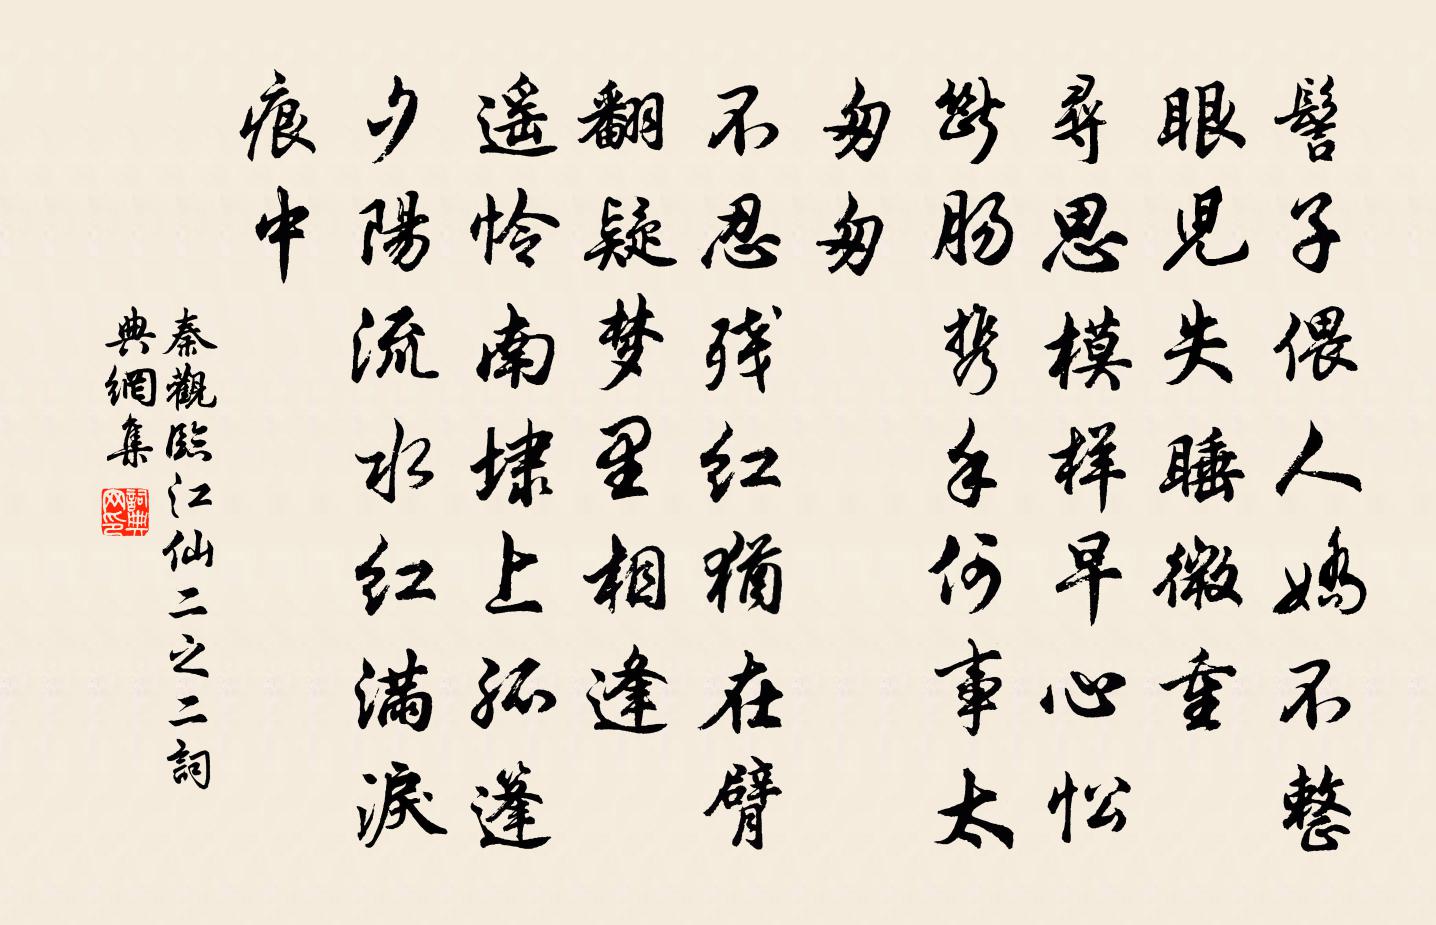 髻子偎人嬌不整
眼兒失睡微重
尋思模样早心忪
斷肠携手何事太
匆匆
不忍残红猶在臂
翻疑梦里相逢
遥怜南埭上孤篷
夕陽流水红满淚
痕中
秦觀臨江仙二之二詞
典網集
詞典
网印